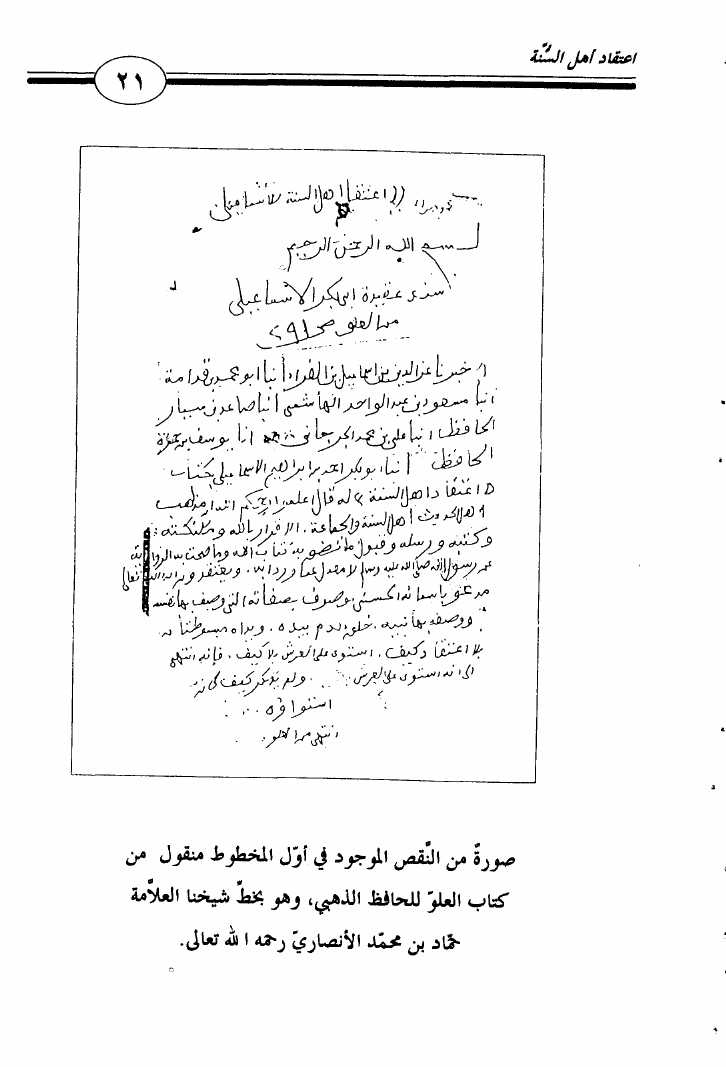 اعتقاد أهل السُّنَّة
٢١
(( اعتقاد اهل السنة للأسماعيلي
بسم الله الرحمن الرحيم
سند عقيدة ابي بكر الاسماعيلي
من العلو ص
اخبرنا عز الدين بن اسماعيل بن الفراء أنبا ابو محمد بن قدامة
انبا مسعود بن عبد الواحد الهاشمي انبا صاعد بن سيار
الحافظ انبا علي بن محمد الجرجاني انا يوسف بن حمزة
الحافظ انبا ابو بكر احمد بن ابراهيم الاسماعيلي بكتاب
اعتقاد اهل السنة له قال اعلموا رحمكم الله ان مذهب
اهل الحديث أهل السنة والجماعة. الاقرار بالله وملئكته
وكتبه ورسله وقبول ما نطق به كتاب الله وما صحت به الرواية
عن رسول الله صلى الله عليه وسلم لا معدل عما ورد به. ويعتقدون ان الله تعالى
مدعو باسمائه الحسنى موصوف بصفاته التي وصف بها نفسه
ووصفه بها نبيه. خلق ادم بيده. ويداه مبسوطتان
بلا اعتقاد كيف. استوى على العرش بلا كيف. فإنه انتهى
الى انه استوى على العرش ولم يذكر كيف كان
استواؤه
انتهى من العلو
صورةٌ من النَّقص الموجود في أوّل المخطوط منقول من
كتاب العلوّ للحافظ الذهبي، وهو بخطِّ شيخنا العلاَّمة
حمّاد بن محمّد الأنصاريّ رحمه الله تعالى.